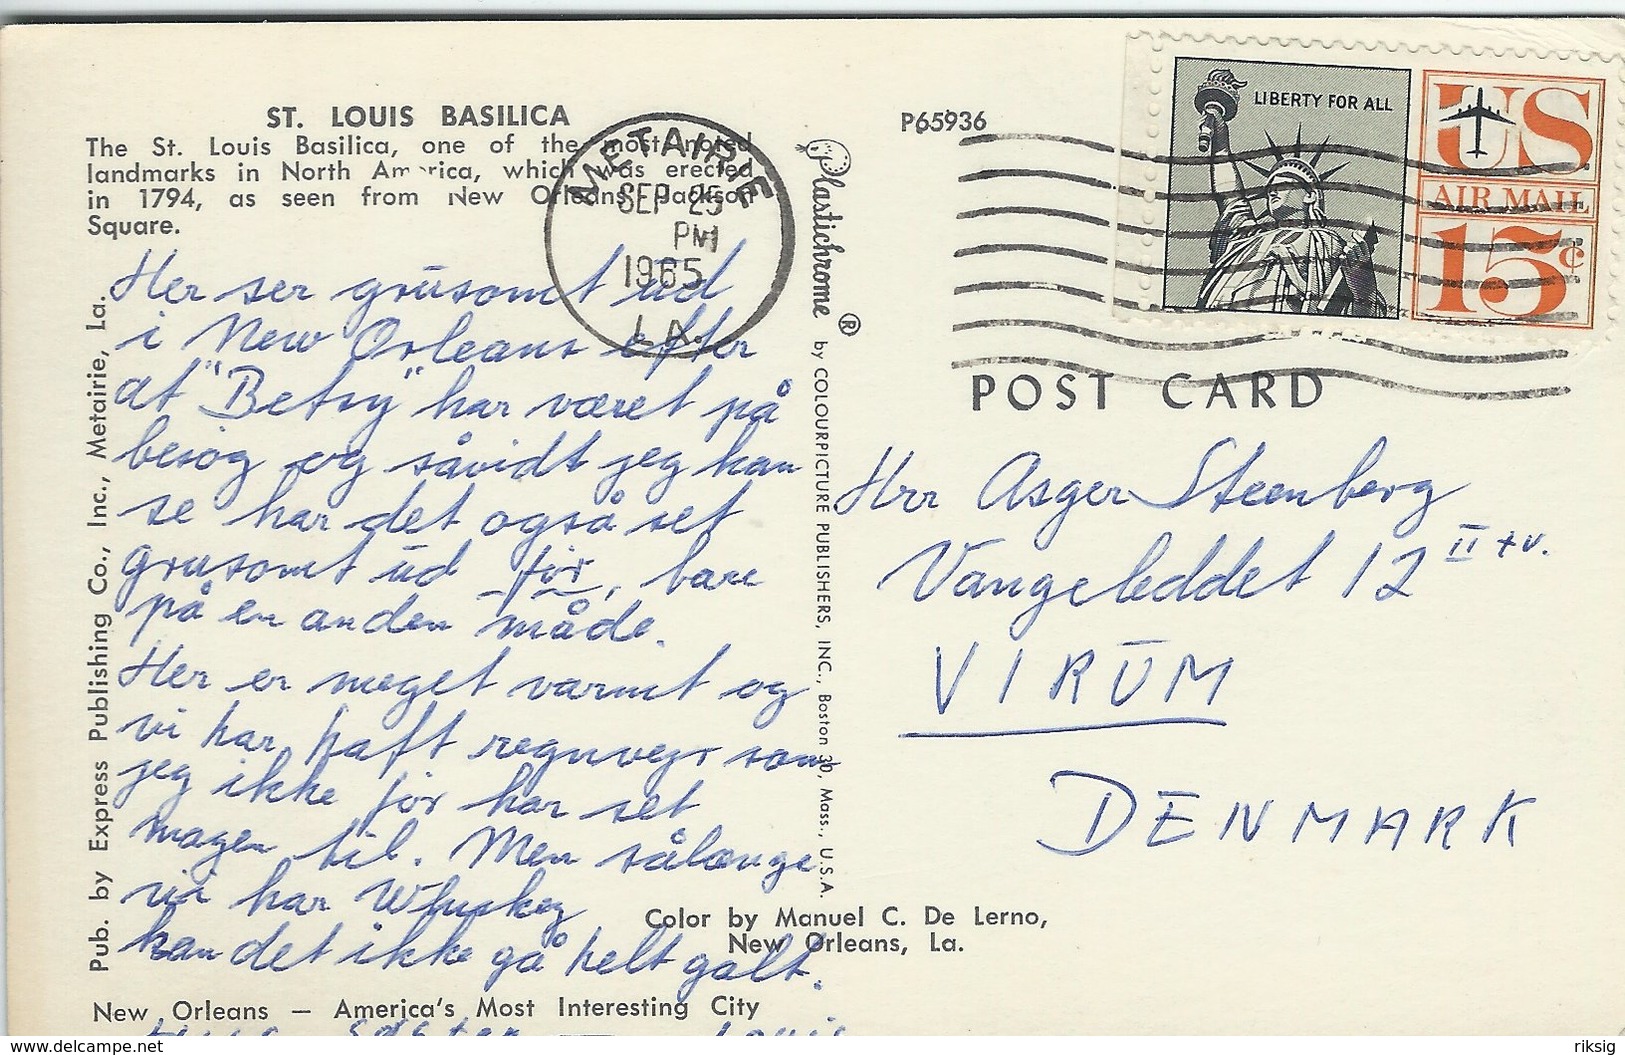 ST. LOUIS BASILICA
The St. Louis Basilica, one of the most noted
landmarks in North America, which was erected
in 1794, as seen from New Orleans' Jackson
Square.
METAIRIE
SEP 25
PM
1965
LA.
Her ser grusomt ud
i New Orleans efter
at "Betsy" har været på
besøg og såvidt jeg kan
se har det også set
grusomt ud før, bare
på en anden måde.
Her er meget varmt og
vi har haft regnvejr som
jeg ikke før har set
magen til. Men sålænge
vi har Whiskey
kan det ikke gå helt galt.
New Orleans — America's Most Interesting City
Pub. by Express Publishing Co., Inc., Metairie, La.
Plastichrome ® by COLOURPICTURE PUBLISHERS, INC., Boston 30, Mass., U.S.A.
P65936
LIBERTY FOR ALL
US
AIR MAIL
15¢
POST CARD
Hrr Asger Steenberg
Vangeleddet 12 II tv.
VIRUM
DENMARK
Color by Manuel C. De Lerno,
New Orleans, La.
www.delcampe.net
riksig